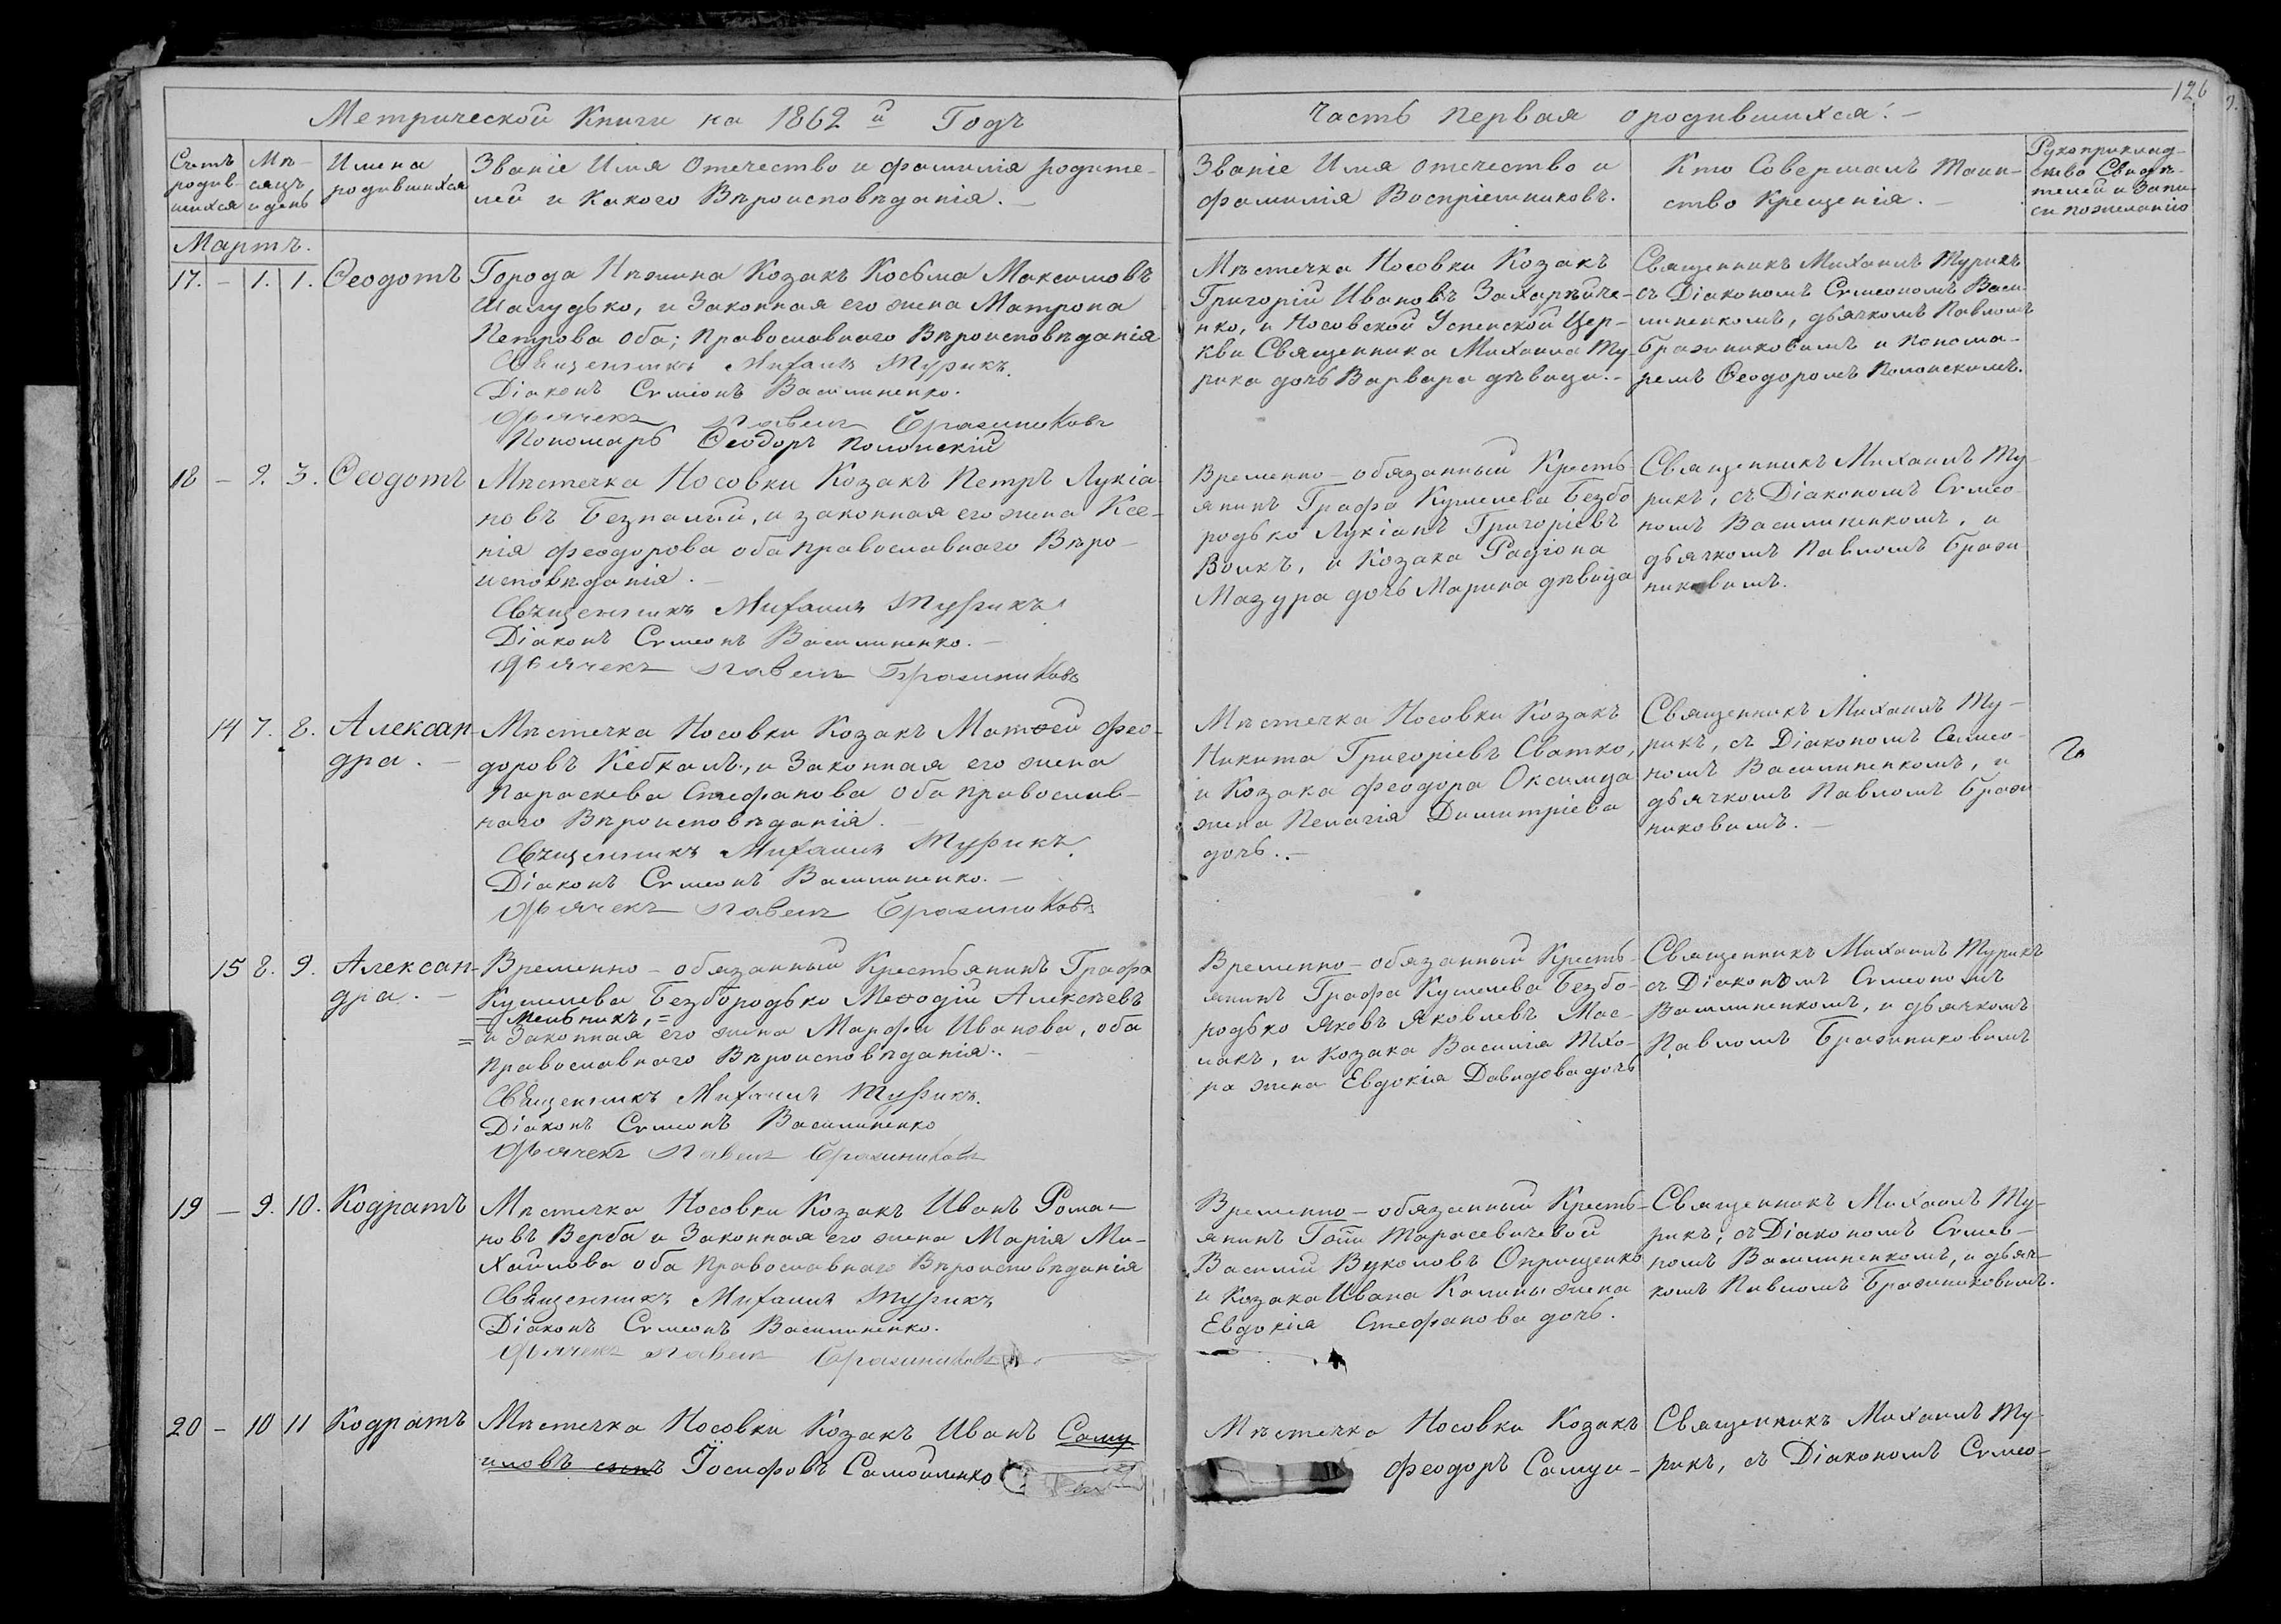 126
Метрической Книги на 1862й Годъ
Часть первая о родившихся.
Счетъ родив-шихся
Мѣ-сяцъ и день
Имена родившихся
Званіе Имя Отечество и фамилія родите-
лей и Какого Вѣроисповѣданія.
Званіе Имя отечество и
фамилія Воспріемниковъ.
Кто Совершалъ Таин-
ство Крещенія.
Рукоприклад-
ство Свидѣ-
телей и Запи-
си по желанію
Мартъ.
17. – 1. 1. Ѳеодотъ
Города Нѣжина Козакъ Косьма Максимовъ
Шалудько, и Законная его жена Матрона
Петрова оба; Православнаго Вѣроисповѣданія
Священникъ Михаилъ Турикъ.
Діаконъ Сѵмеонъ Василиненко.
Дьячекъ Павелъ Бражниковъ
Пономарь Ѳеодоръ Полонскій
Мѣстечка Носовки Козакъ
Григорій Ивановъ Захарѣиче-
нко, и Носовской Успенской Цер-
кви Священника Михаила Ту-
рика дочь Варвара дѣвица.
Священникъ Михаилъ Турикъ
съ Діакономъ Сѵмеономъ Васи-
линенкомъ, дьячкомъ Павломъ
Бражниковымъ и понома-
ремъ Ѳеодоромъ Полонскимъ.
18 – 2. 3. Ѳеодотъ
Мѣстечка Носовки Козакъ Петръ Лукіа-
новъ Безпалый, и законная его жена Ксе-
нія Феодорова оба православнаго Вѣро-
исповѣданія.
Священникъ Михаилъ Турикъ
Діаконъ Сѵмеонъ Василиненко.
Дьячекъ Павелъ Бражниковъ
Временно-обязанный Кресть-
янинъ Графа Кушелева Безбо-
родько Лукіанъ Григоріевъ
Волкъ, и Козака Радіона
Мазура дочь Марина дѣвица
Священникъ Михаилъ Ту-
рикъ, съ Діакономъ Сѵмео-
номъ Василиненкомъ, и
дьячкомъ Павломъ Браж-
никовымъ.
14 7. 8. Алексан-
дра.
Мѣстечка Носовки Козакъ Матѳей Фео-
доровъ Кебкалъ, и Законная его жена
Параскева Стефанова оба православ-
наго Вѣроисповѣданія.
Священникъ Михаилъ Турикъ
Діаконъ Сѵмеонъ Василиненко.
Дьячекъ Павелъ Бражниковъ
Мѣстечка Носовки Козакъ
Никита Григоріевъ Сватко,
и Козака Феодора Оксимца
жена Пелагія Димитріева
дочь.
Священникъ Михаилъ Ту-
рикъ, съ Діакономъ Сѵмео-
номъ Василиненкомъ, и
дьячкомъ Павломъ Браж-
никовымъ.
15 8. 9. Алексан-
дра.
Временно-обязанный Крестьянинъ Графа
Кушелева Безбородько Меѳодій Алексѣевъ
= Мельникъ, =
и Законная его жена Марфа Иванова, оба
Православнаго Вѣроисповѣданія.
Священникъ Михаилъ Турикъ.
Діаконъ Сѵмеонъ Василиненко
Дьячекъ Павелъ Бражниковъ
Временно-обязанный Кресть-
янинъ Графа Кушелева Безбо-
родько Яковъ Яковлевъ Мас-
лакъ, и Козака Василія Тхо-
ра жена Евдокія Давидова дочь
Священникъ Михаилъ Турикъ
съ Діакономъ Сѵмеономъ
Василиненкомъ, и дьячкомъ
Павломъ Бражниковымъ
19 – 9. 10. Кодратъ
Мѣстечка Носовки Козакъ Иванъ Рома-
новъ Верба и Законная его жена Марія Ми-
хайлова оба Православнаго Вѣроисповѣданія
Священникъ Михаилъ Турикъ
Діаконъ Сѵмеонъ Василиненко.
Дьячекъ Павелъ Бражниковъ
Временно-обязанный Кресть-
янинъ Гжи Тарасевичевой
Василій Вуколовъ Оприщенко
и Козака Ивана Калины жена
Евдокія Стефанова дочь.
Священникъ Михаилъ Ту-
рикъ, съ Діакономъ Сѵмео-
номъ Василиненкомъ, и дьяч-
комъ Павломъ Бражниковымъ.
20 – 10 11 Кодратъ
Мѣстечка Носовки Козакъ Иванъ Саму
иловъ сынъ Іосифовъ Самойленко
Мѣстечка Носовки Козакъ
Феодоръ Самуи-
Священникъ Михаилъ Ту-
рикъ, съ Діакономъ Сѵмео-